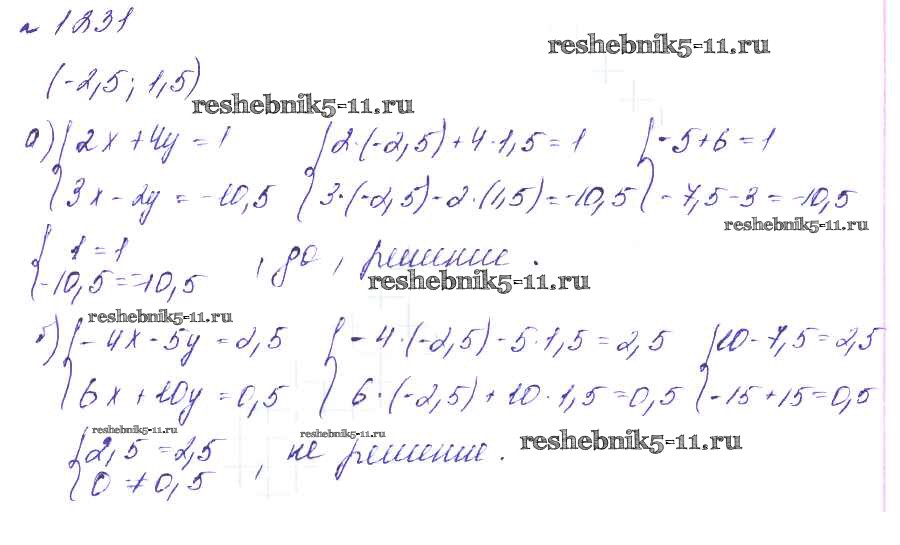 № 1231
reshebnik5-11.ru
(-2,5; 1,5)
reshebnik5-11.ru
а) { 2x + 4y = 1 { 2·(-2,5) + 4·1,5 = 1 { -5+6 = 1
{ 3x - 2y = -10,5 { 3·(-2,5) - 2·(1,5) = -10,5 { -7,5 - 3 = -10,5
reshebnik5-11.ru
{ 1 = 1
{ -10,5 = -10,5 , да, решение.
reshebnik5-11.ru
reshebnik5-11.ru
б) { -4x - 5y = 2,5 { -4·(-2,5) - 5·1,5 = 2,5 { 10 - 7,5 = 2,5
{ 6x + 10y = 0,5 { 6·(-2,5) + 10·1,5 = 0,5 { -15 + 15 = 0,5
reshebnik5-11.ru reshebnik5-11.ru reshebnik5-11.ru
{ 2,5 = 2,5
{ 0 ≠ 0,5 , не решение.